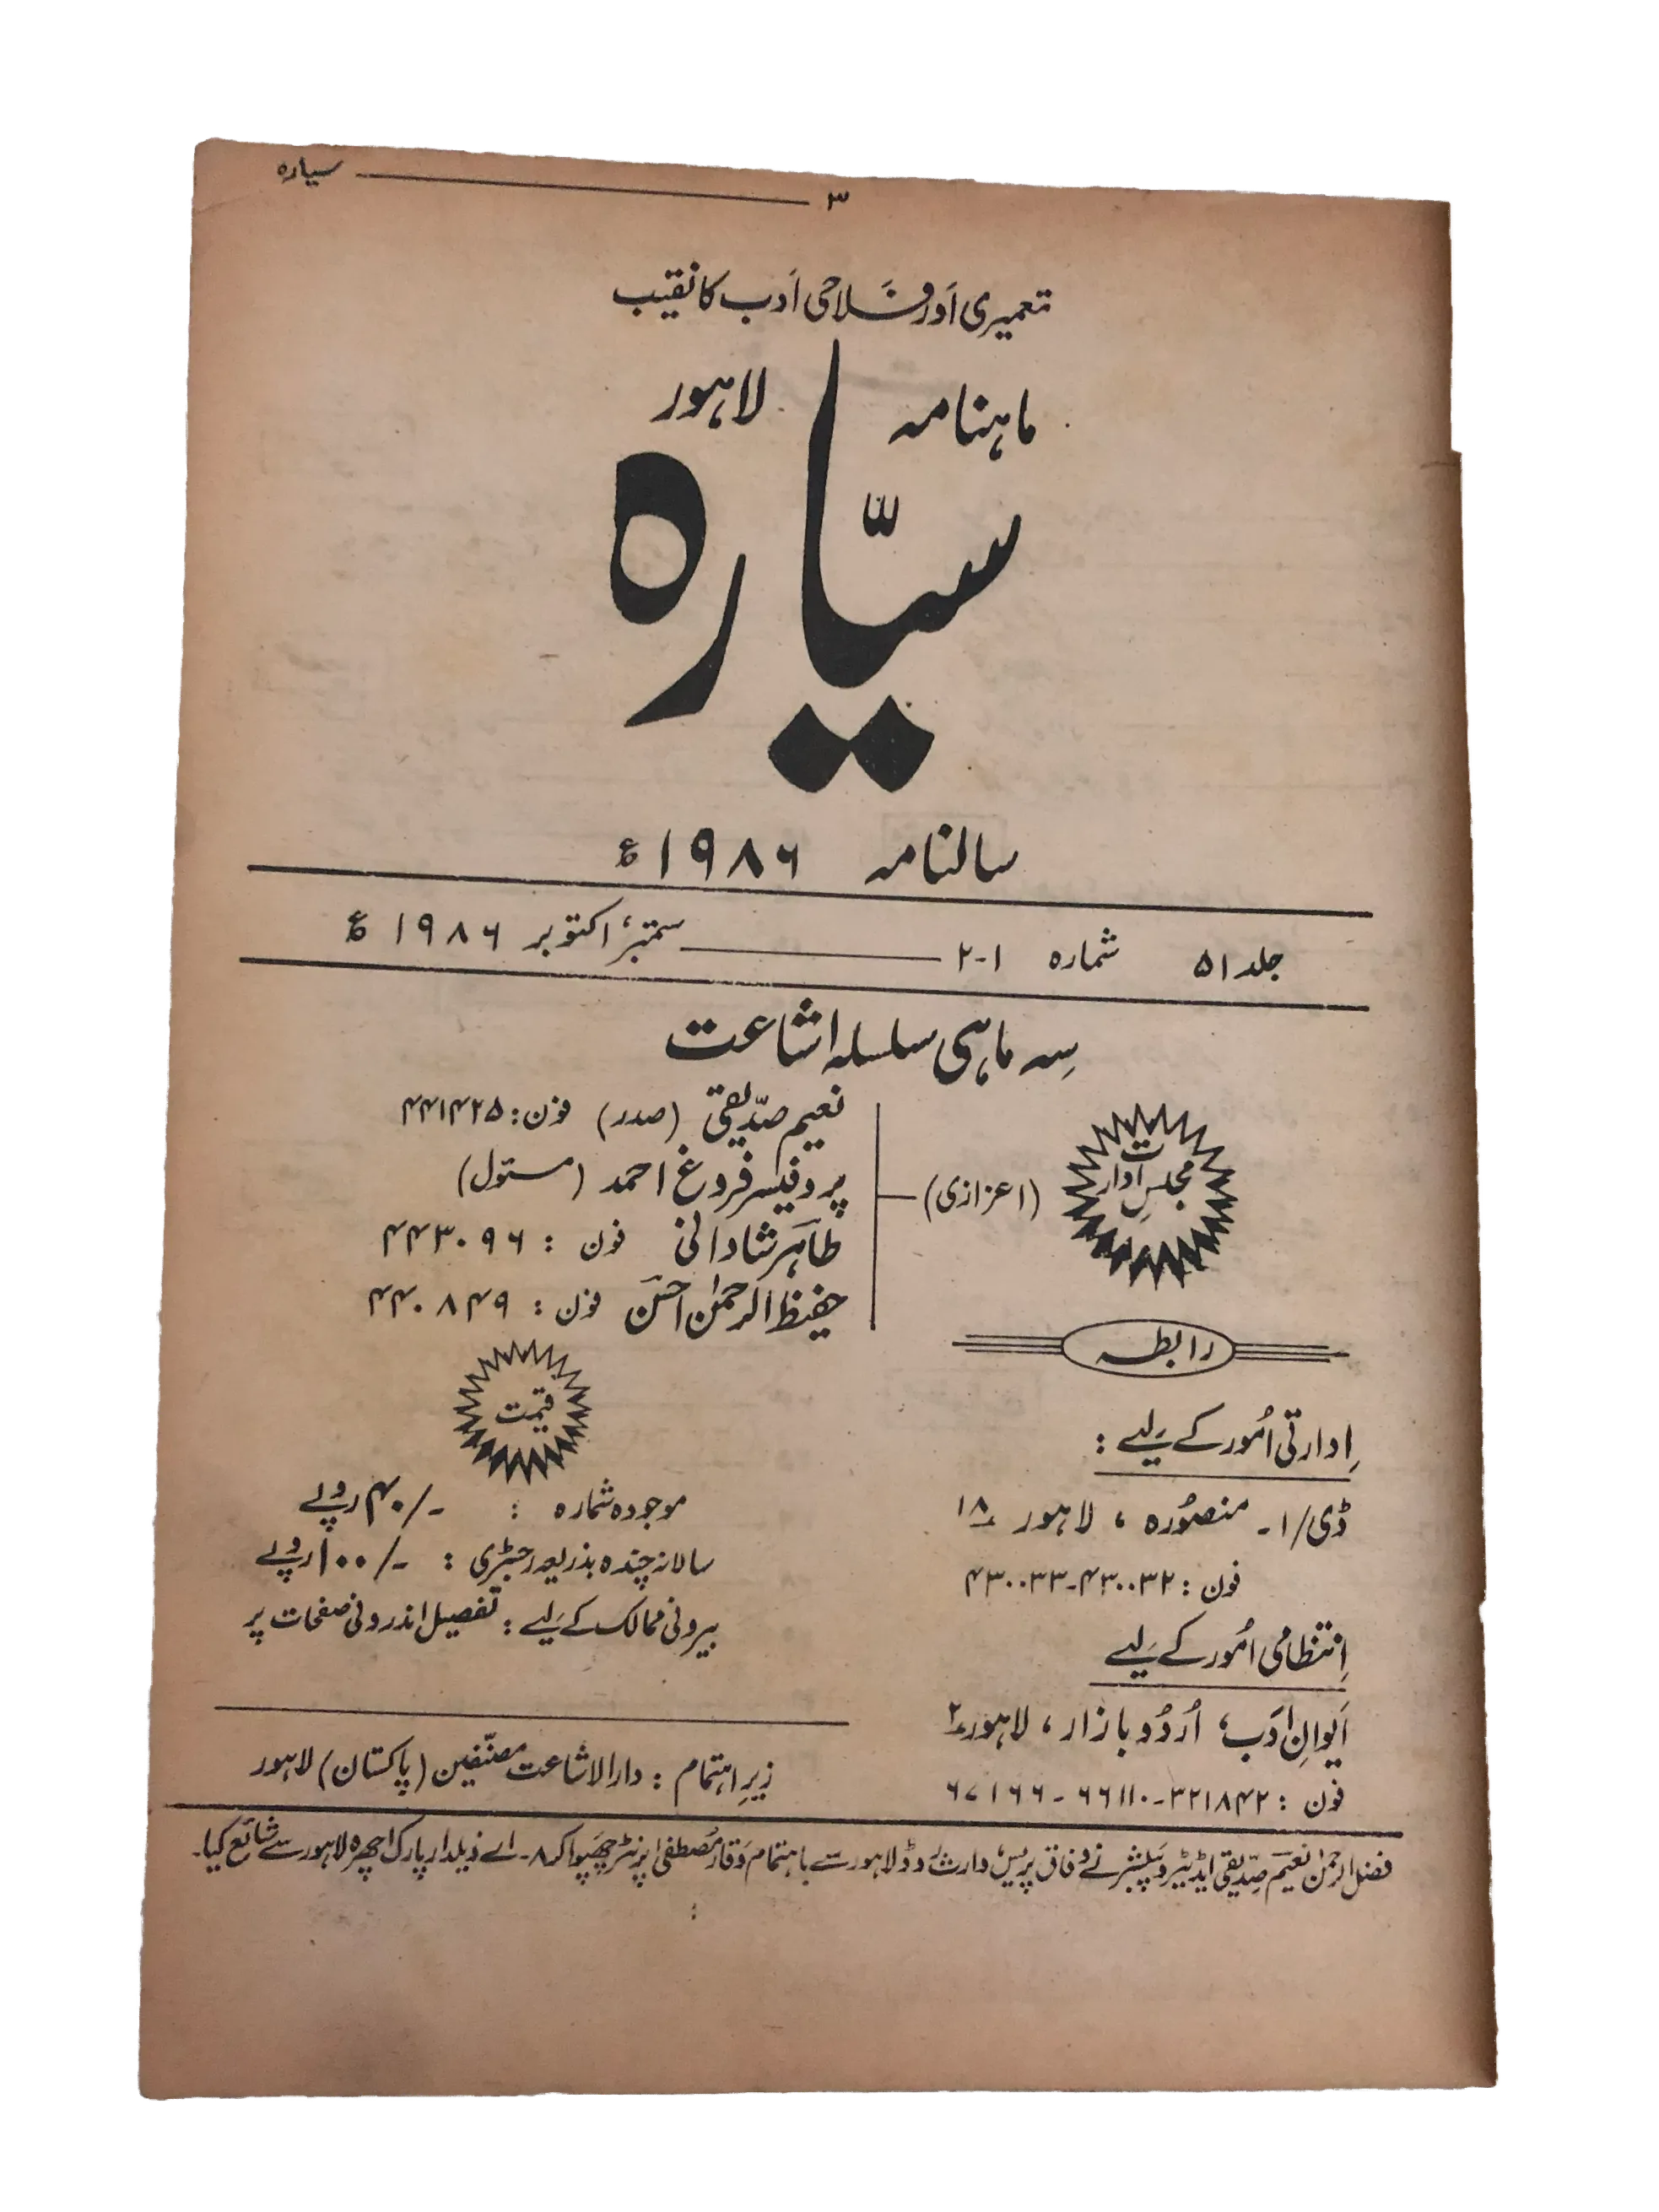 سیارہ ۳
تعمیری اَور فلاحی اَدب کا نقیب
ماہنامہ لاہور
سیّارہ
سالنامہ ۱۹۸۶ء
جلد ۵۱ شمارہ ۱-۲ ستمبر، اکتوبر ۱۹۸۶ء
سِہ ماہی سلسلہ اشاعت
مجلسِ ادارت
(اعزازی)
نعیم صدّیقی (صدر) فون: ۴۴۱۴۲۵
پروفیسر فروغ احمد (مسئول)
طاہر شادانی فون : ۴۴۳۰۹۶
حفیظ الرحمٰن احسن فون : ۴۴۰۸۴۹
رابطہ
اِدارتی اُمور کے لیے :
ڈی/۱۔ منصُورہ ، لاہور ۱۸
فون : ۴۳۰۰۳۲-۴۳۰۰۳۳
اِنتظامی اُمور کے لیے
اَیوانِ اَدَب، اُردُو بازار، لاہور ۲
فون : ۳۲۱۸۴۲-۶۶۱۱۰-۶۷۱۶۶
قیمت
موجودہ شمارہ : ۴۰/- روپے
سالانہ چندہ بذریعہ رجسٹری : ۱۰۰/- روپے
بیرونی ممالک کے لیے : تفصیل اندرونی صفحات پر
زیرِ اہتمام : دارالاشاعت مصنّفین (پاکستان) لاہور
فضل الرحمٰن نعیم صدّیقی ایڈیٹر و پبلشر نے وفاق پریس وارث روڈ لاہور سے با ہتمام وقار مُصطفیٰ پرنٹر چھپوا کر ۸۔اے ذیلدار پارک اچھرہ لاہور سے شائع کیا۔